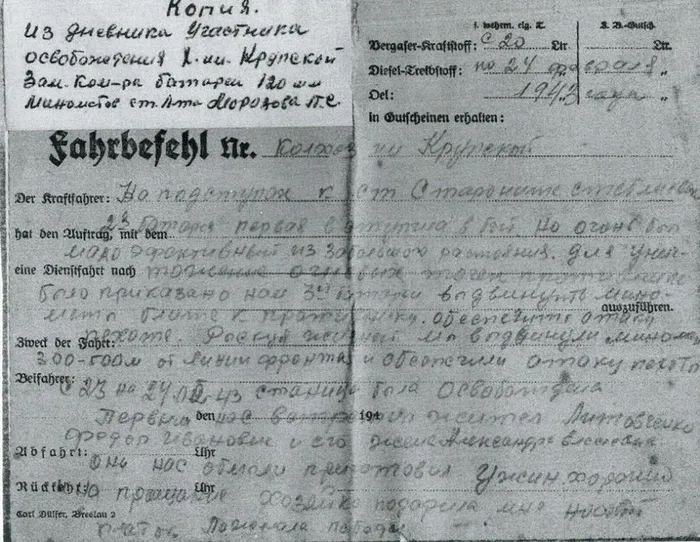 Копия.
Из дневника участника
освобождения х. им. Крупской
Зам. Ком-ра батареи 120 мм
минометов ст. л-та Морозова П.С.
f. wehrm. eig. K.
Vergaser-Kraftstoff: с 20 Ltr
Ltr.
Diesel-Treibstoff: по 24 февраля „
Oel: 1943 года „
in Gutscheinen erhalten:
Fahrbefehl Nr. Колхоз им Крупской
Der Kraftfahrer: На подступах к ст Старонижестеблиевс
hat den Auftrag, mit dem
батарея первая вступила в бой но огонь был
мало эфективный из за большого растояния. для унич-
eine Dienstfahrt nach тожения огневых точек
было приказано нам 3й батареи выдвинуть мино-
auszuführen.
меты ближе к противнику. обеспечить атаку
Zweck der Fahrt:
пехоте. мы выдвинули миномет
300-400м от линии фронта и обеспечили атаку пехоты
Beifahrer:
с 23 на 24 43 станица была освобождена
den 194
Первый нас житель Литовченко
Федор Иванович и его жена Александра
Abfahrt: Uhr
они нас приготовил ужин хороший
Rückkehr: Uhr
На прощание хозяйка подарила мне
Carl Dülfer, Breslau 2
платок Пожелала победы